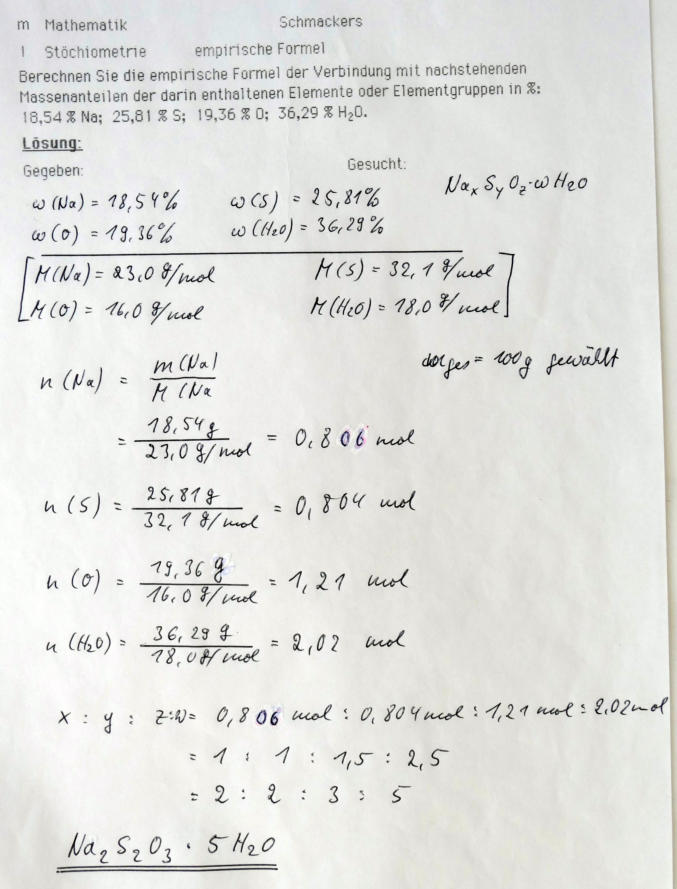 m Mathematik Schmackers
I Stöchiometrie empirische Formel
Berechnen Sie die empirische Formel der Verbindung mit nachstehenden
Massenanteilen der darin enthaltenen Elemente oder Elementgruppen in %:
18,54 % Na; 25,81 % S; 19,36 % O; 36,29 % H₂O.
Lösung:
Gegeben: Gesucht:
w(Na) = 18,54% w(S) = 25,81% NaₓSᵧO_z·wH₂O
w(O) = 19,36% w(H₂O) = 36,29%
[M(Na) = 23,0 g/mol M(S) = 32,1 g/mol
M(O) = 16,0 g/mol M(H₂O) = 18,0 g/mol]
n(Na) = m(Na) / M(Na = 100g gewählt
= 18,54g / 23,0 g/mol = 0,806 mol
n(S) = 25,81g / 32,1 g/mol = 0,804 mol
n(O) = 19,36 g / 16,0 g/mol = 1,21 mol
n(H₂O) = 36,29 g / 18,0g/mol = 2,02 mol
x : y : z:w = 0,806 mol : 0,804 mol : 1,21 mol : 2,02 mol
= 1 : 1 : 1,5 : 2,5
= 2 : 2 : 3 : 5
Na₂S₂O₃ · 5 H₂O